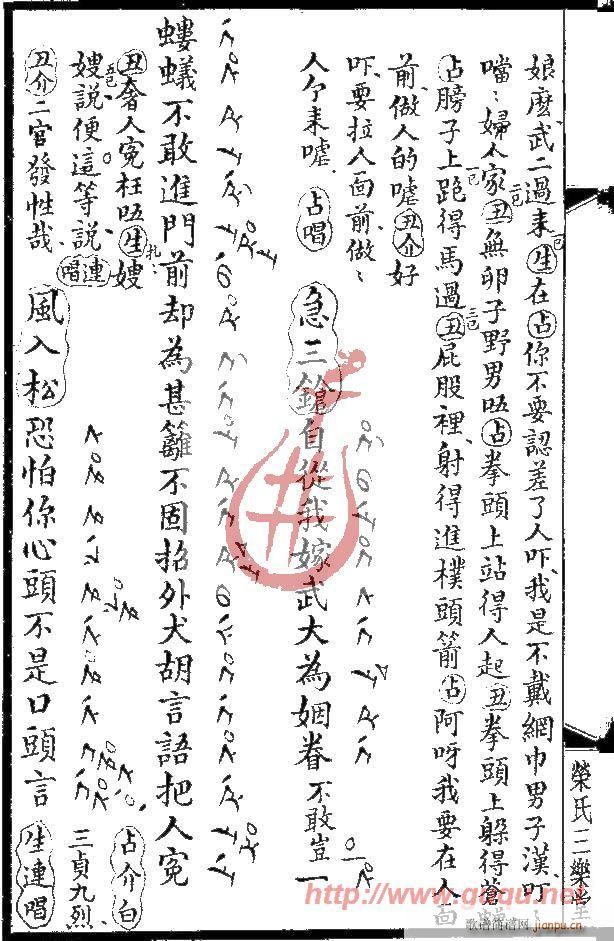 娘麽武二過来生在占你不要認差了人吓我是不戴網巾男子漢叮
噹〻婦人家丑無卵子野男唔占拳頭上站得人起丑拳頭上躲得蒼
占膀子上跑得馬過丑屁股裡射得進樸頭箭占阿呀我要在人面
前做人的嘘丑介好
吓要拉人面前做〻
人个来嘘占唱
急三鎗自從我嫁武大為姻眷不敢豈一
螻蟻不敢進門前却為甚籬不固招外犬胡言語把人寃
丑奢人寃枉唔生嫂
嫂説便這等説連唱
丑介二官發性哉
風入松恐怕你心頭不是口頭言
占介白
三貞九烈
生連唱
榮氏三樂堂
http://www.qupu.net
歌谱简谱网
jianpu.cn